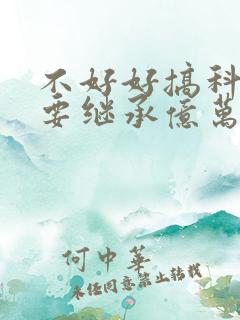 不好好搞科
要继承億萬
何中華
未经同意禁止转载